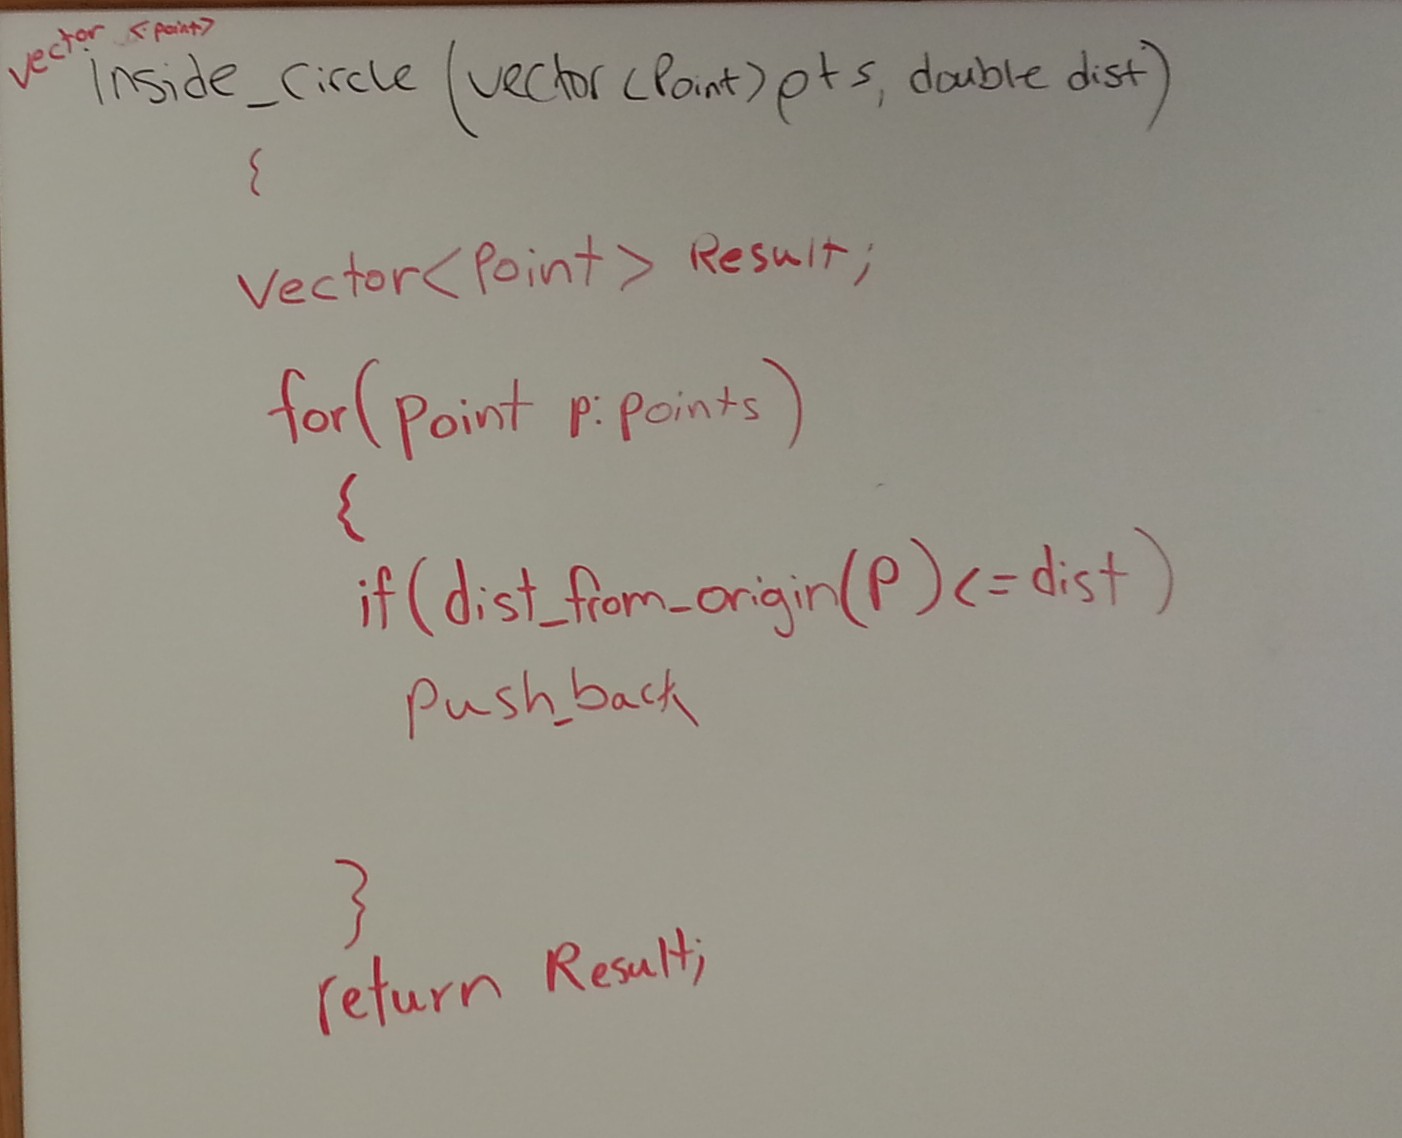 vector <point>
Inside_circle (vector<Point> pts, double dist)
{
vector<Point> Result;
for(point p: points)
{
if(dist_from_origin(P)<=dist)
push_back
}
return Result;